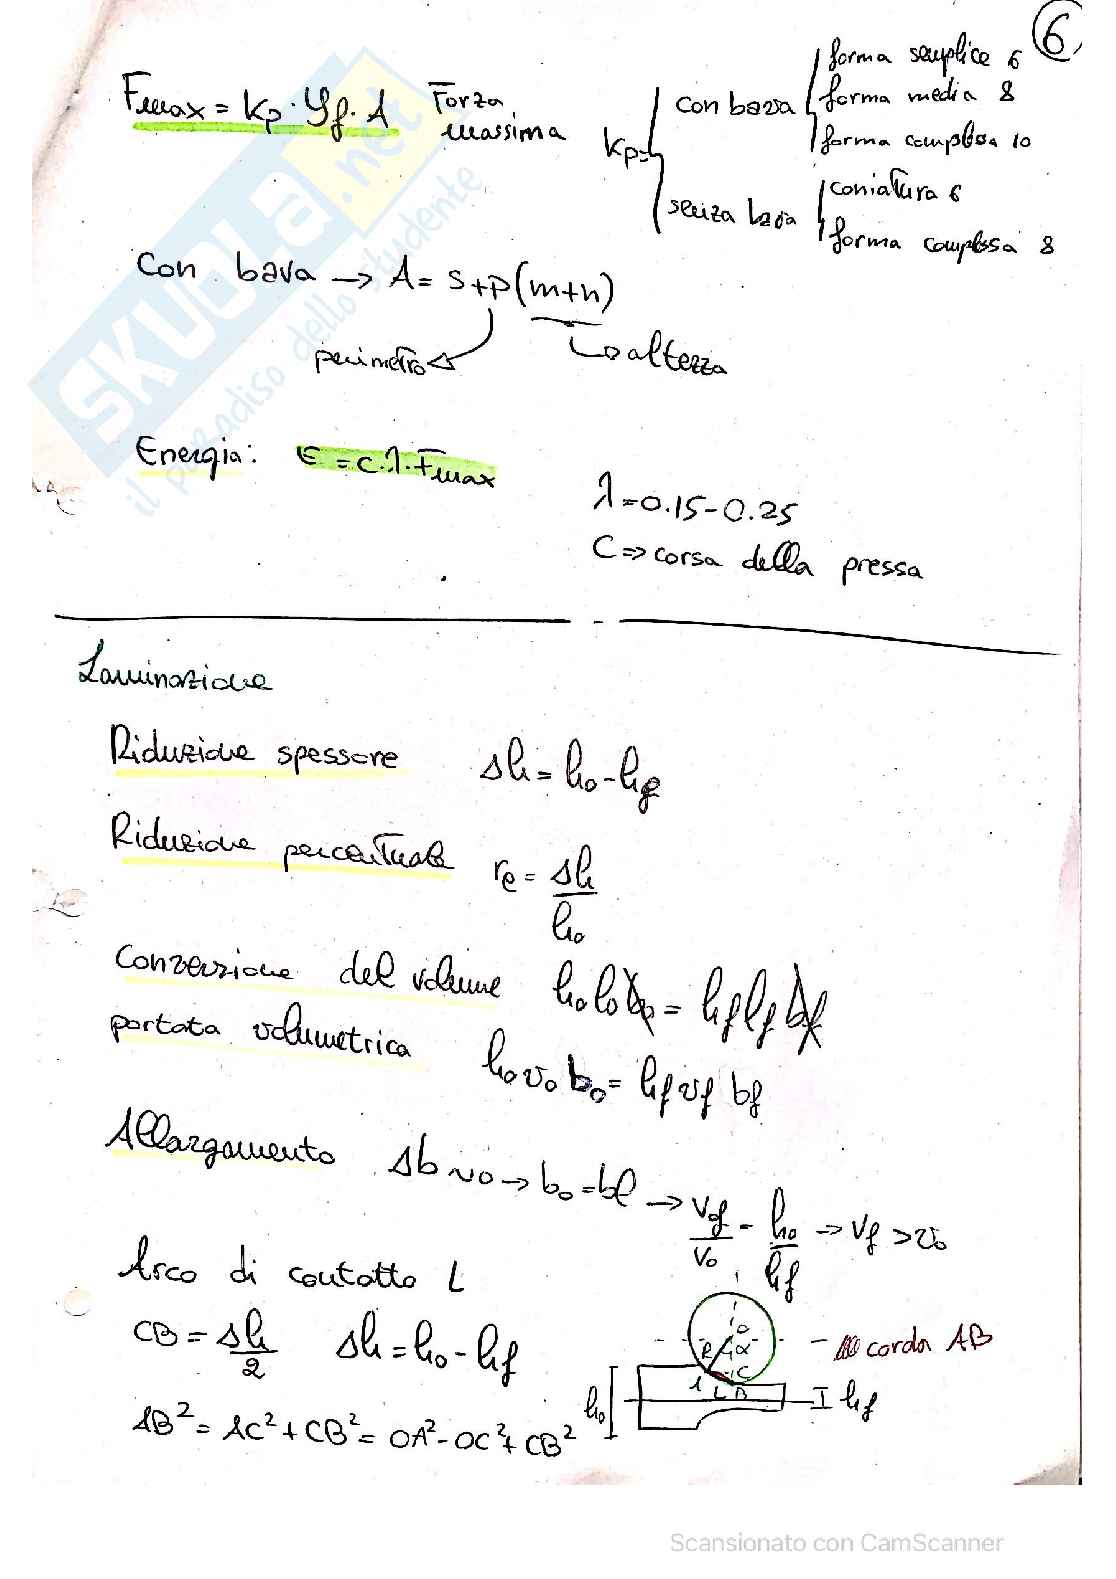 6
Fmax = Kp · Yf · A Forza massima
Kp=
con bava
forma semplice 6
forma media 8
forma complessa 10
senza bava
coniatura 6
forma complessa 8
Con bava → A = S+p(m+n)
perimetro
altezza
Energia: E = c·λ·Fmax
λ=0.15-0.25
C => corsa della pressa
Laminazione
Riduzione spessore Δh = h0 - hf
Riduzione percentuale re = Δh/h0
Conservazione del volume h0 l0 b0 = hf lf bf
portata volumetrica h0 v0 b0 = hf vf bf
Allargamento Δb ~0 → b0 = bf → vf/v0 = h0/hf → vf > v0
Arco di contatto L
CB = Δh/2 Δh = h0 - hf
AB² = AC² + CB² = OA² - OC² + CB²
O
R α
C
A L B
h0
hf
corda AB
SKUOLA.net
il paradiso dello studente
Scansionato con CamScanner